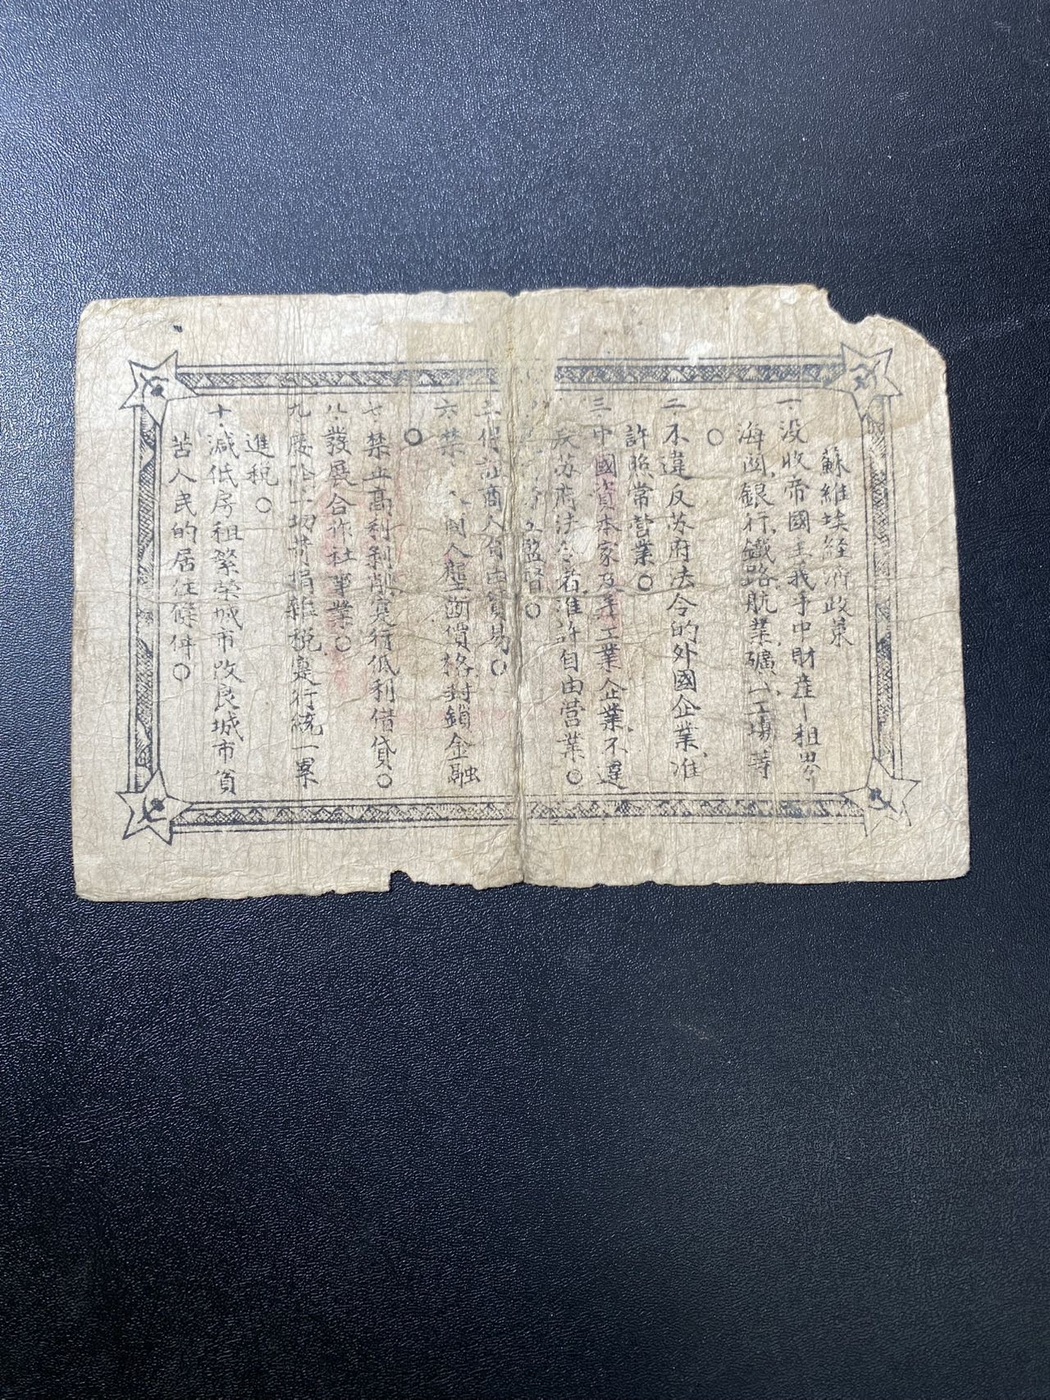 蘇維埃経済政策
一 没收帝國主義手中財產—租界
海関、銀行、鐵路、航業、礦一工場等
○
二 不違反苏府法令的外國企業、准
許照常营業○
三 中國資本家及手工業企業不違
反苏府法 者准許自由营業○
○
商人自由貿易○
六 禁 價格封鎖金融
○
七 禁止高利利削実行低利借貸○
八 發展合作社事業○
九 廢除一切苛捐雜稅実行統一累
進稅○
十 減低房租繁榮城市改良城市貧
苦人民的居住條件○